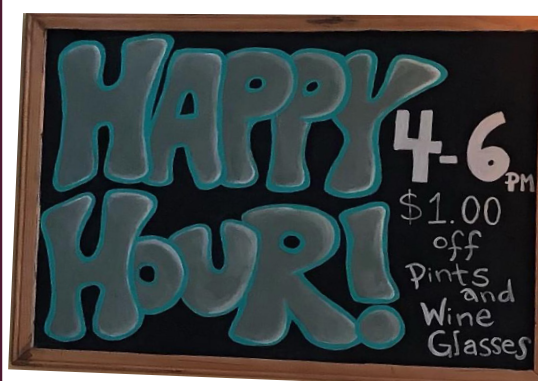 HAPPY
HOUR!
4-6PM
$1.00
off
Pints
and
Wine
Glasses